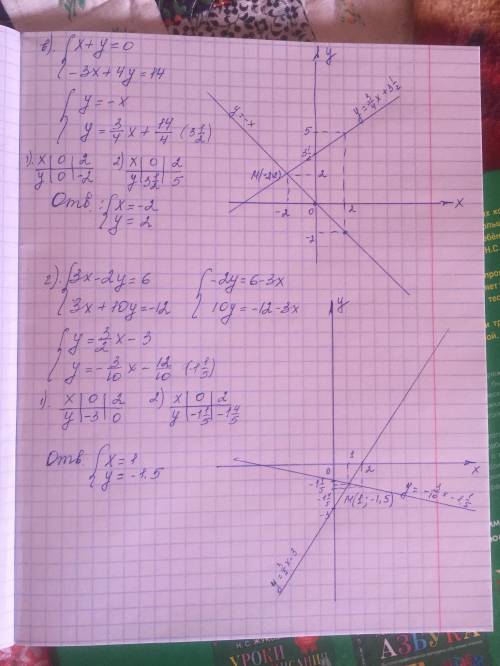 в). { x+y=0
-3x+4y=14
{ y=-x
y=3/4 x+14/4 (3 1/2)
1). x 0 2
y 0 -2
2) x 0 2
y 3 1/2 5
Отв.: { x=-2
y=2
y
y=-x
y=3/4 x+3 1/2
5
3 1/2
M(-2;2)
2
-2
0
2
x
-2
г). { 3x-2y=6
3x+10y=-12
{ -2y=6-3x
10y=-12-3x
{ y=3/2 x-3
y=-3/10 x-12/10 (1 1/5)
1). x 0 2
y -3 0
2) x 0 2
y -1 1/5 -1 4/5
Отв { x=1
y=-1.5
y
0
1
2
x
-1 1/5
-3
M(1;-1,5)
y=-3/10 x-1 1/5
Н.С. ЖУК
УРОКИ
АЗБУКА